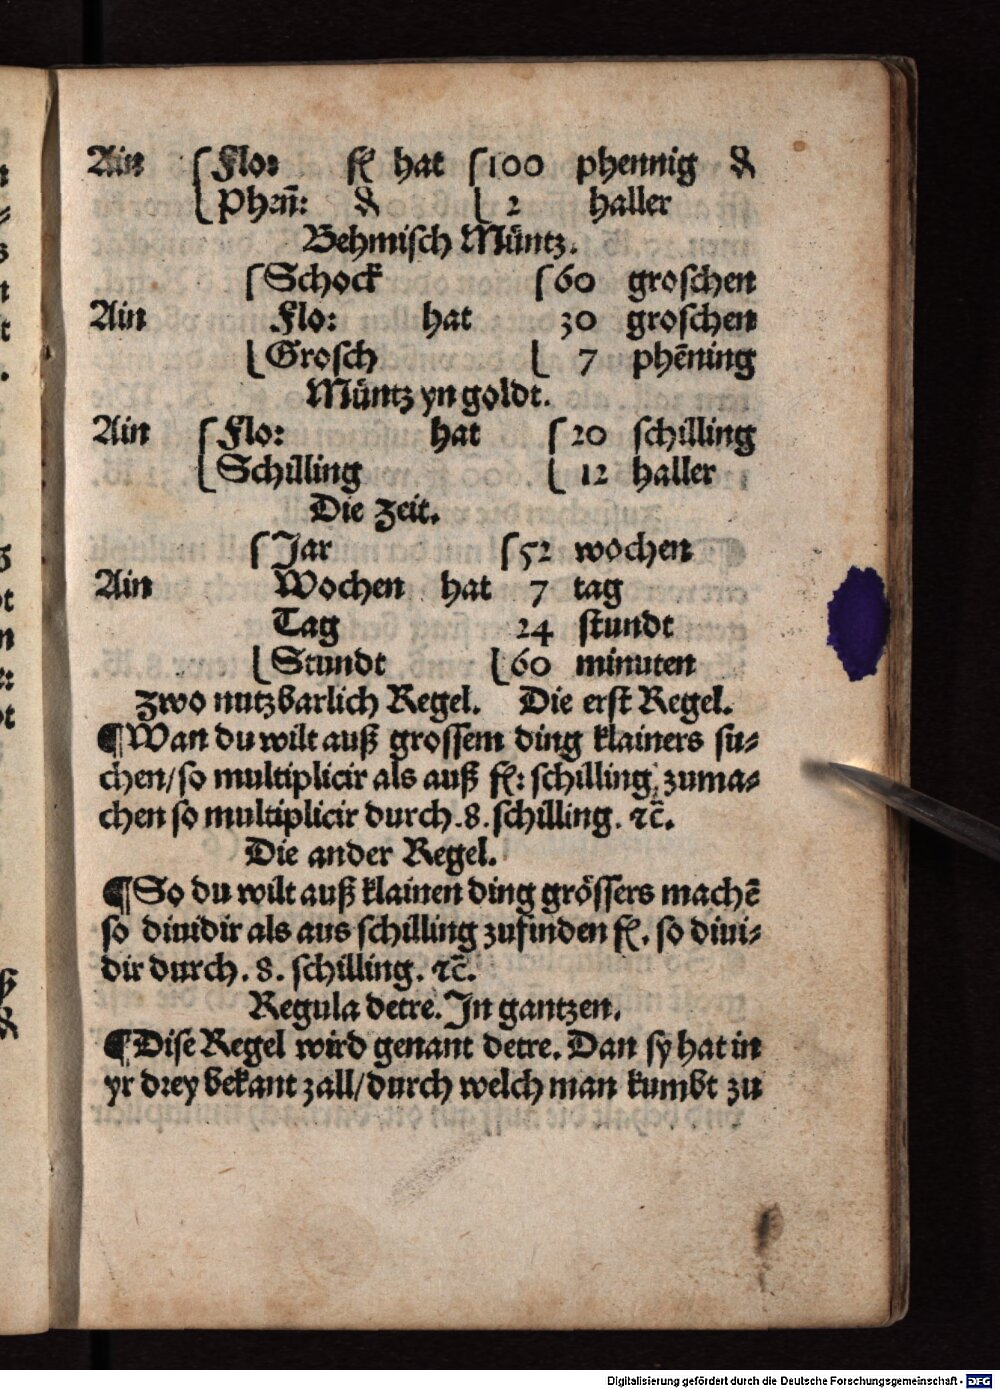 Ain Flo: fl hat 100 phennig ₰
Phen̄: ₰ 2 haller
Behmisch Müntz.
Schock 60 groschen
Ain Flo: hat 30 groschen
Grosch 7 phēning
Müntz yn goldt.
Ain Flo: hat 20 schilling
Schilling 12 haller
Die zeit.
Jar 52 wochen
Ain Wochen hat 7 tag
Tag 24 stundt
Stundt 60 minuten
Zwo nutzbarlich Regel. Die erst Regel.
¶Wan du wilt auß grossem ding klainers su⸗
chen/so multiplicir als auß fl: schilling, zuma⸗
chen so multiplicir durch.8.schilling. ⁊c̄.
Die ander Regel.
¶So du wilt auß klainen ding grössers machē
so diuidir als aus schilling zufinden fl. so diui⸗
dir durch.8. schilling. ⁊c̄.
Regula detre. In gantzen.
¶Dise Regel wird genant detre. Dan sy hat in
yr drey bekant zall/durch welch man kumbt zu
Digitalisierung gefördert durch die Deutsche Forschungsgemeinschaft - DFG